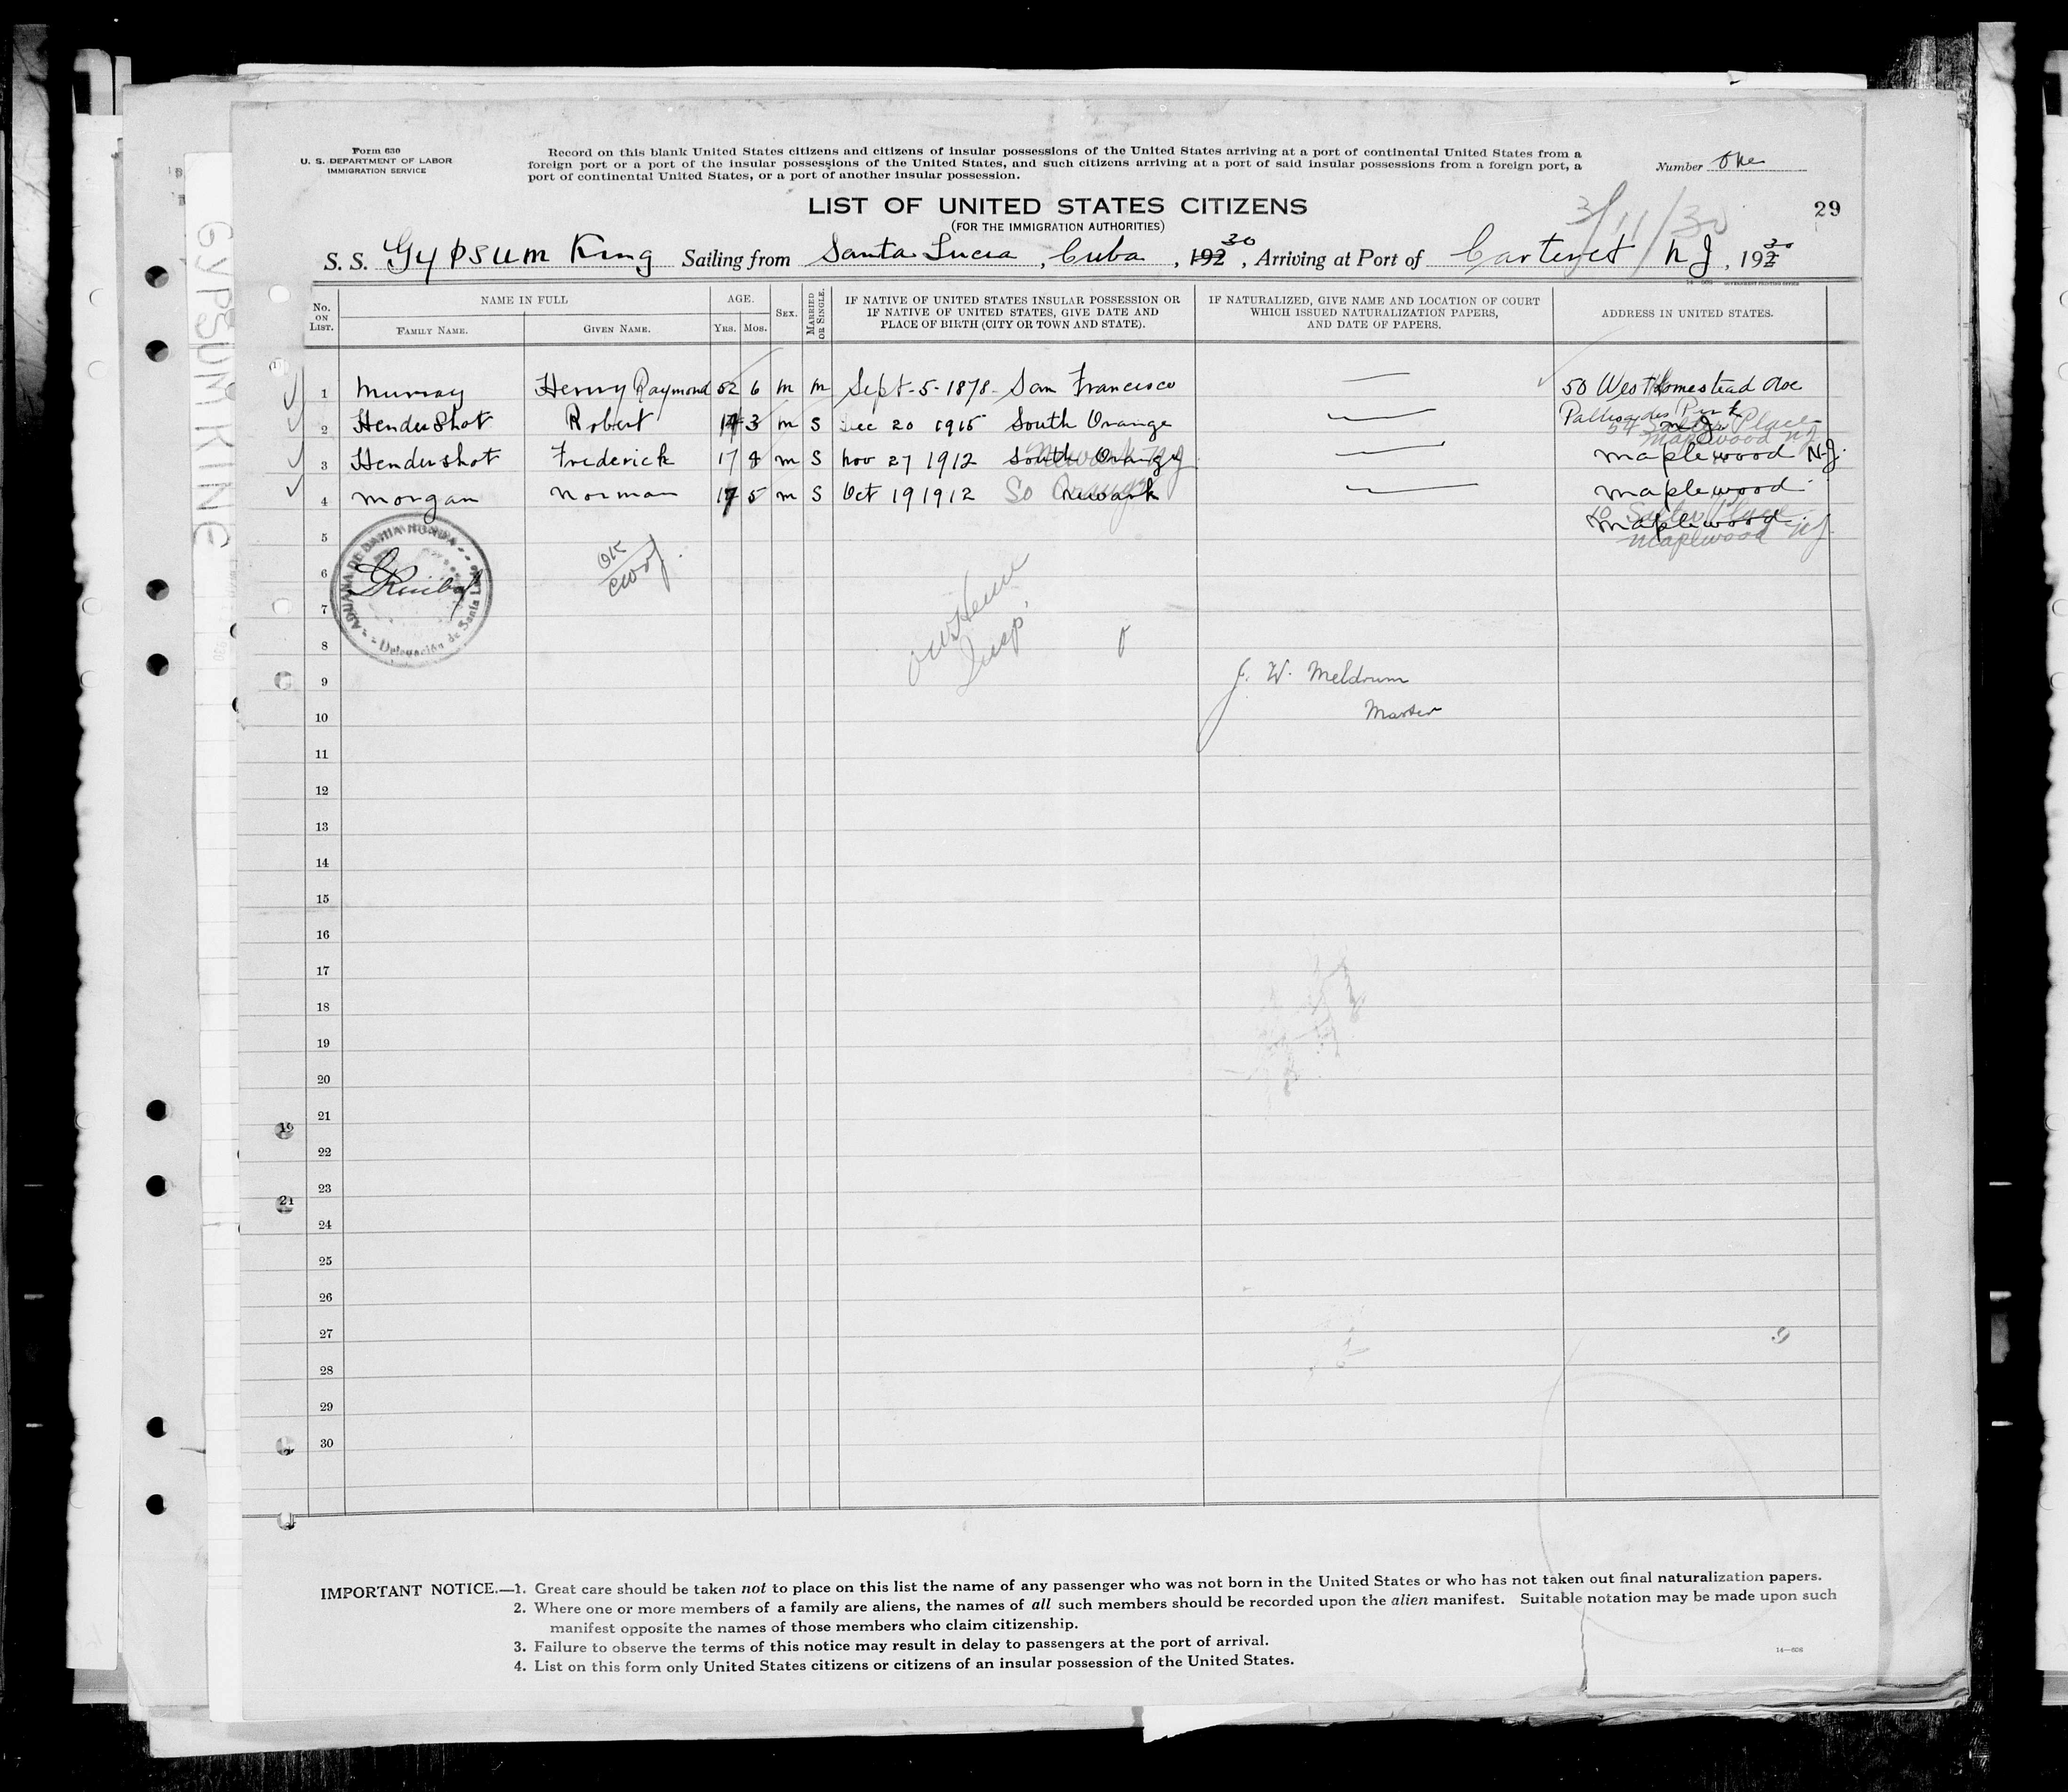 Form 630
U. S. DEPARTMENT OF LABOR
IMMIGRATION SERVICE
Record on this blank United States citizens and citizens of insular possessions of the United States arriving at a port of continental United States from a
foreign port or a port of the insular possessions of the United States, and such citizens arriving at a port of said insular possessions from a foreign port, a
port of continental United States, or a port of another insular possession.
Number One
LIST OF UNITED STATES CITIZENS
(FOR THE IMMIGRATION AUTHORITIES)
3/11/30
29
S. S. Gypsum King Sailing from Santa Lucia, Cuba, 192 30, Arriving at Port of Carteret N J, 192 30
GYPSUM KING
No. ON LIST.
NAME IN FULL
FAMILY NAME.
GIVEN NAME.
AGE.
YRS. MOS.
SEX.
MARRIED OR SINGLE.
IF NATIVE OF UNITED STATES INSULAR POSSESSION OR
IF NATIVE OF UNITED STATES, GIVE DATE AND
PLACE OF BIRTH (CITY OR TOWN AND STATE).
IF NATURALIZED, GIVE NAME AND LOCATION OF COURT
WHICH ISSUED NATURALIZATION PAPERS,
AND DATE OF PAPERS.
ADDRESS IN UNITED STATES.
1 Murray Henry Raymond 52 6 m m Sept-5-1878- San Francisco 50 West Homestead Ave
Palisades Park
2 HenderShot Robert 14 3 m S Dec 20 1915 South Orange N J Place
Maplewood NJ
3 Hendershot Frederick 17 4 m S Nov 27 1912 South Orange Newark NJ Maplewood N.J.
4 Morgan Norman 17 5 m S Oct 19 1912 So Orange Newark Maplewood
5 Maplewood
Maplewood NJ
ADUANA DE BAHIA HONDA
Delegación de Santa Lucia
OK
6
7
8
Insp.
9 J. W. Meldrum
10 Master
11
12
13
14
15
16
17
18
19
20
21
22
23
24
25
26
27
28
29
30
19
21
IMPORTANT NOTICE.—1. Great care should be taken not to place on this list the name of any passenger who was not born in the United States or who has not taken out final naturalization papers.
2. Where one or more members of a family are aliens, the names of all such members should be recorded upon the alien manifest. Suitable notation may be made upon such
manifest opposite the names of those members who claim citizenship.
3. Failure to observe the terms of this notice may result in delay to passengers at the port of arrival.
4. List on this form only United States citizens or citizens of an insular possession of the United States.
14—608